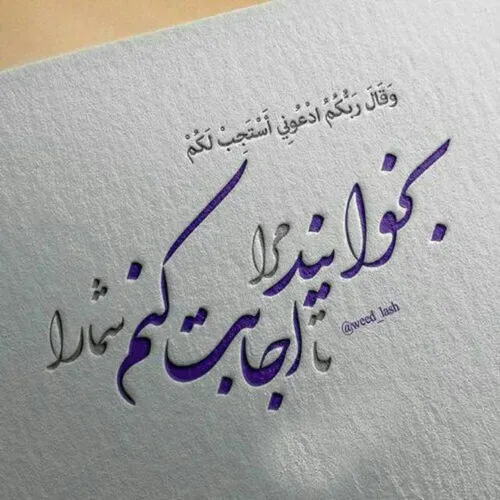 وَقَالَ رَبُّكُمُ ادْعُونِي أَسْتَجِبْ لَكُمْ
بخوانید مرا
تا اجابت کنم شما را
@weed_lash